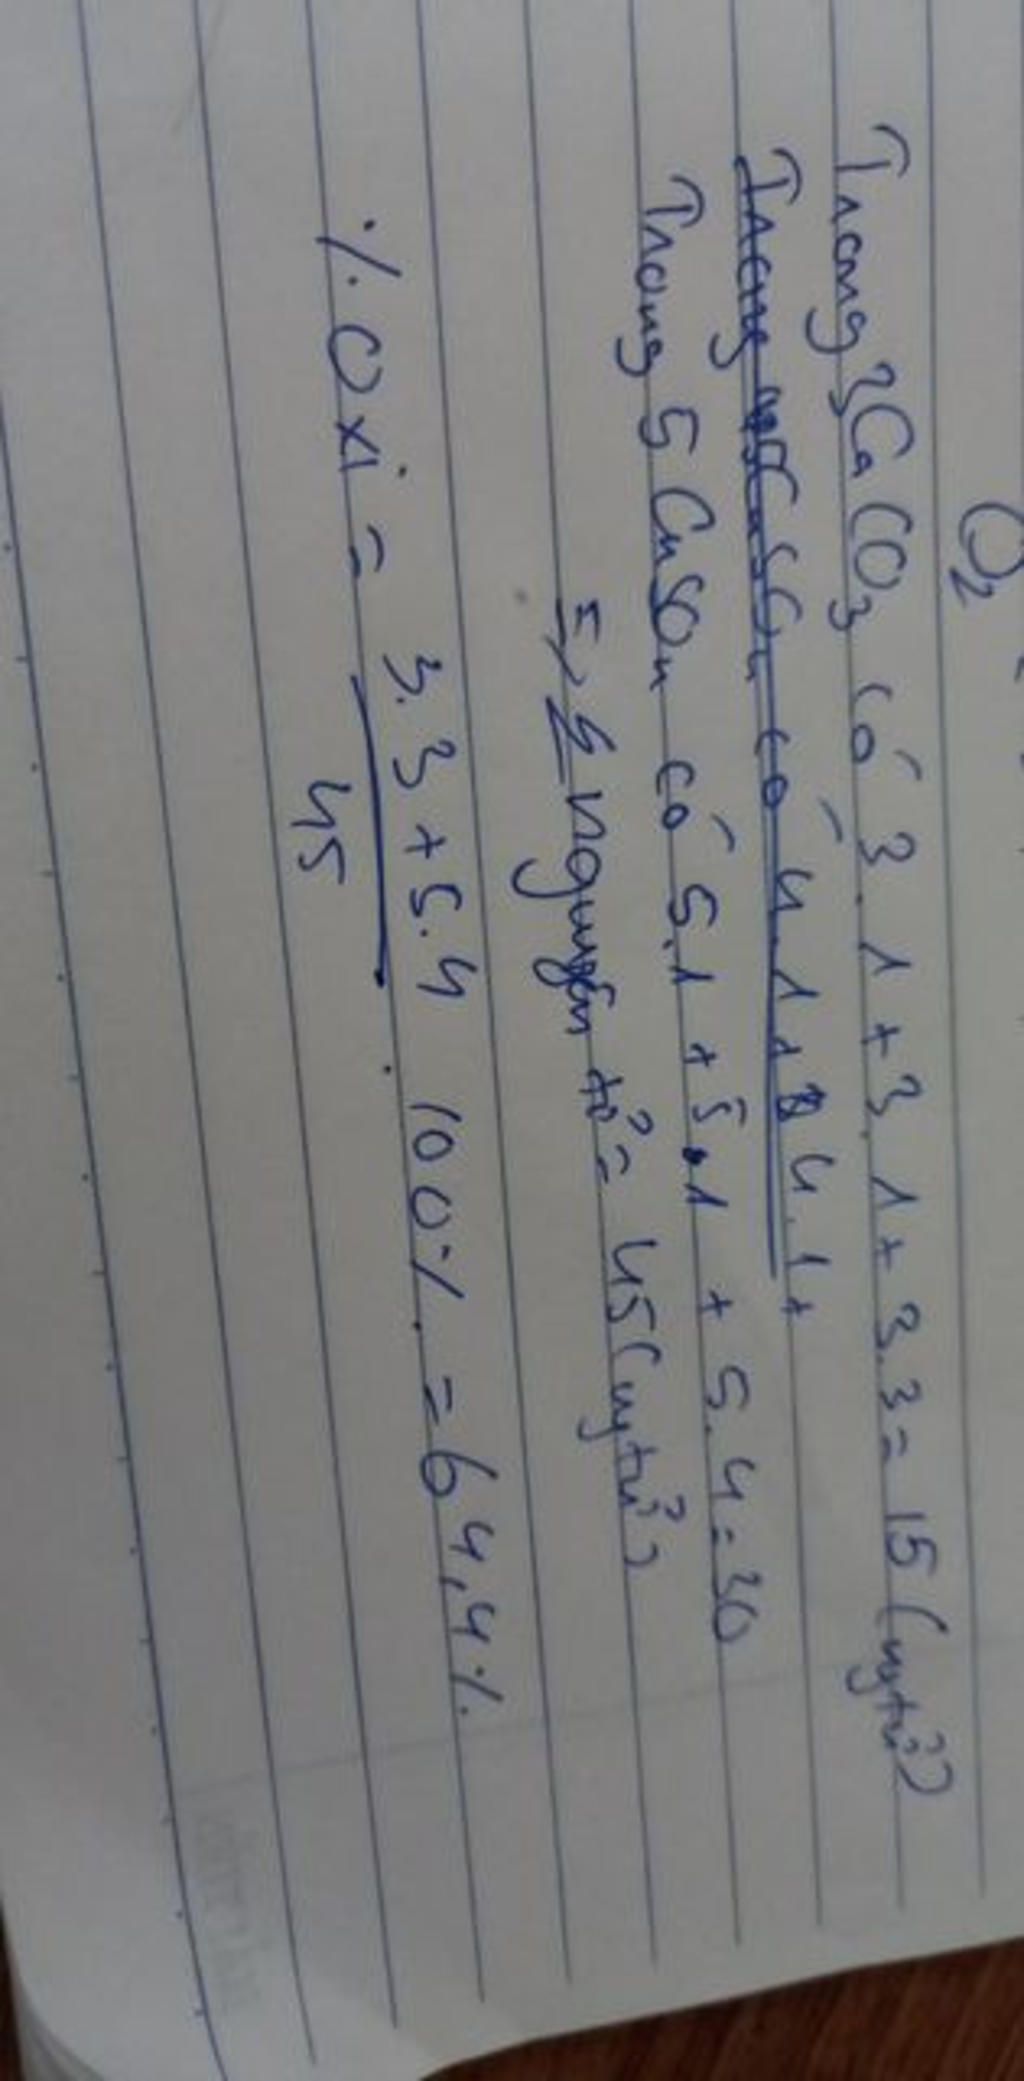 O₂
Trong 3CaCO₃ có 3.1 + 3.1 + 3.3 = 15 (ngtử)
Trong 5CuSO₄ có 4.1 + 4.1 +
Trong 5CuSO₄ có 5.1 + 5.1 + 5.4 = 30
=> Σ nguyên tử = 45 (ngtử)
% Oxi = 3.3 + 5.4 / 45 . 100% = 64,4%